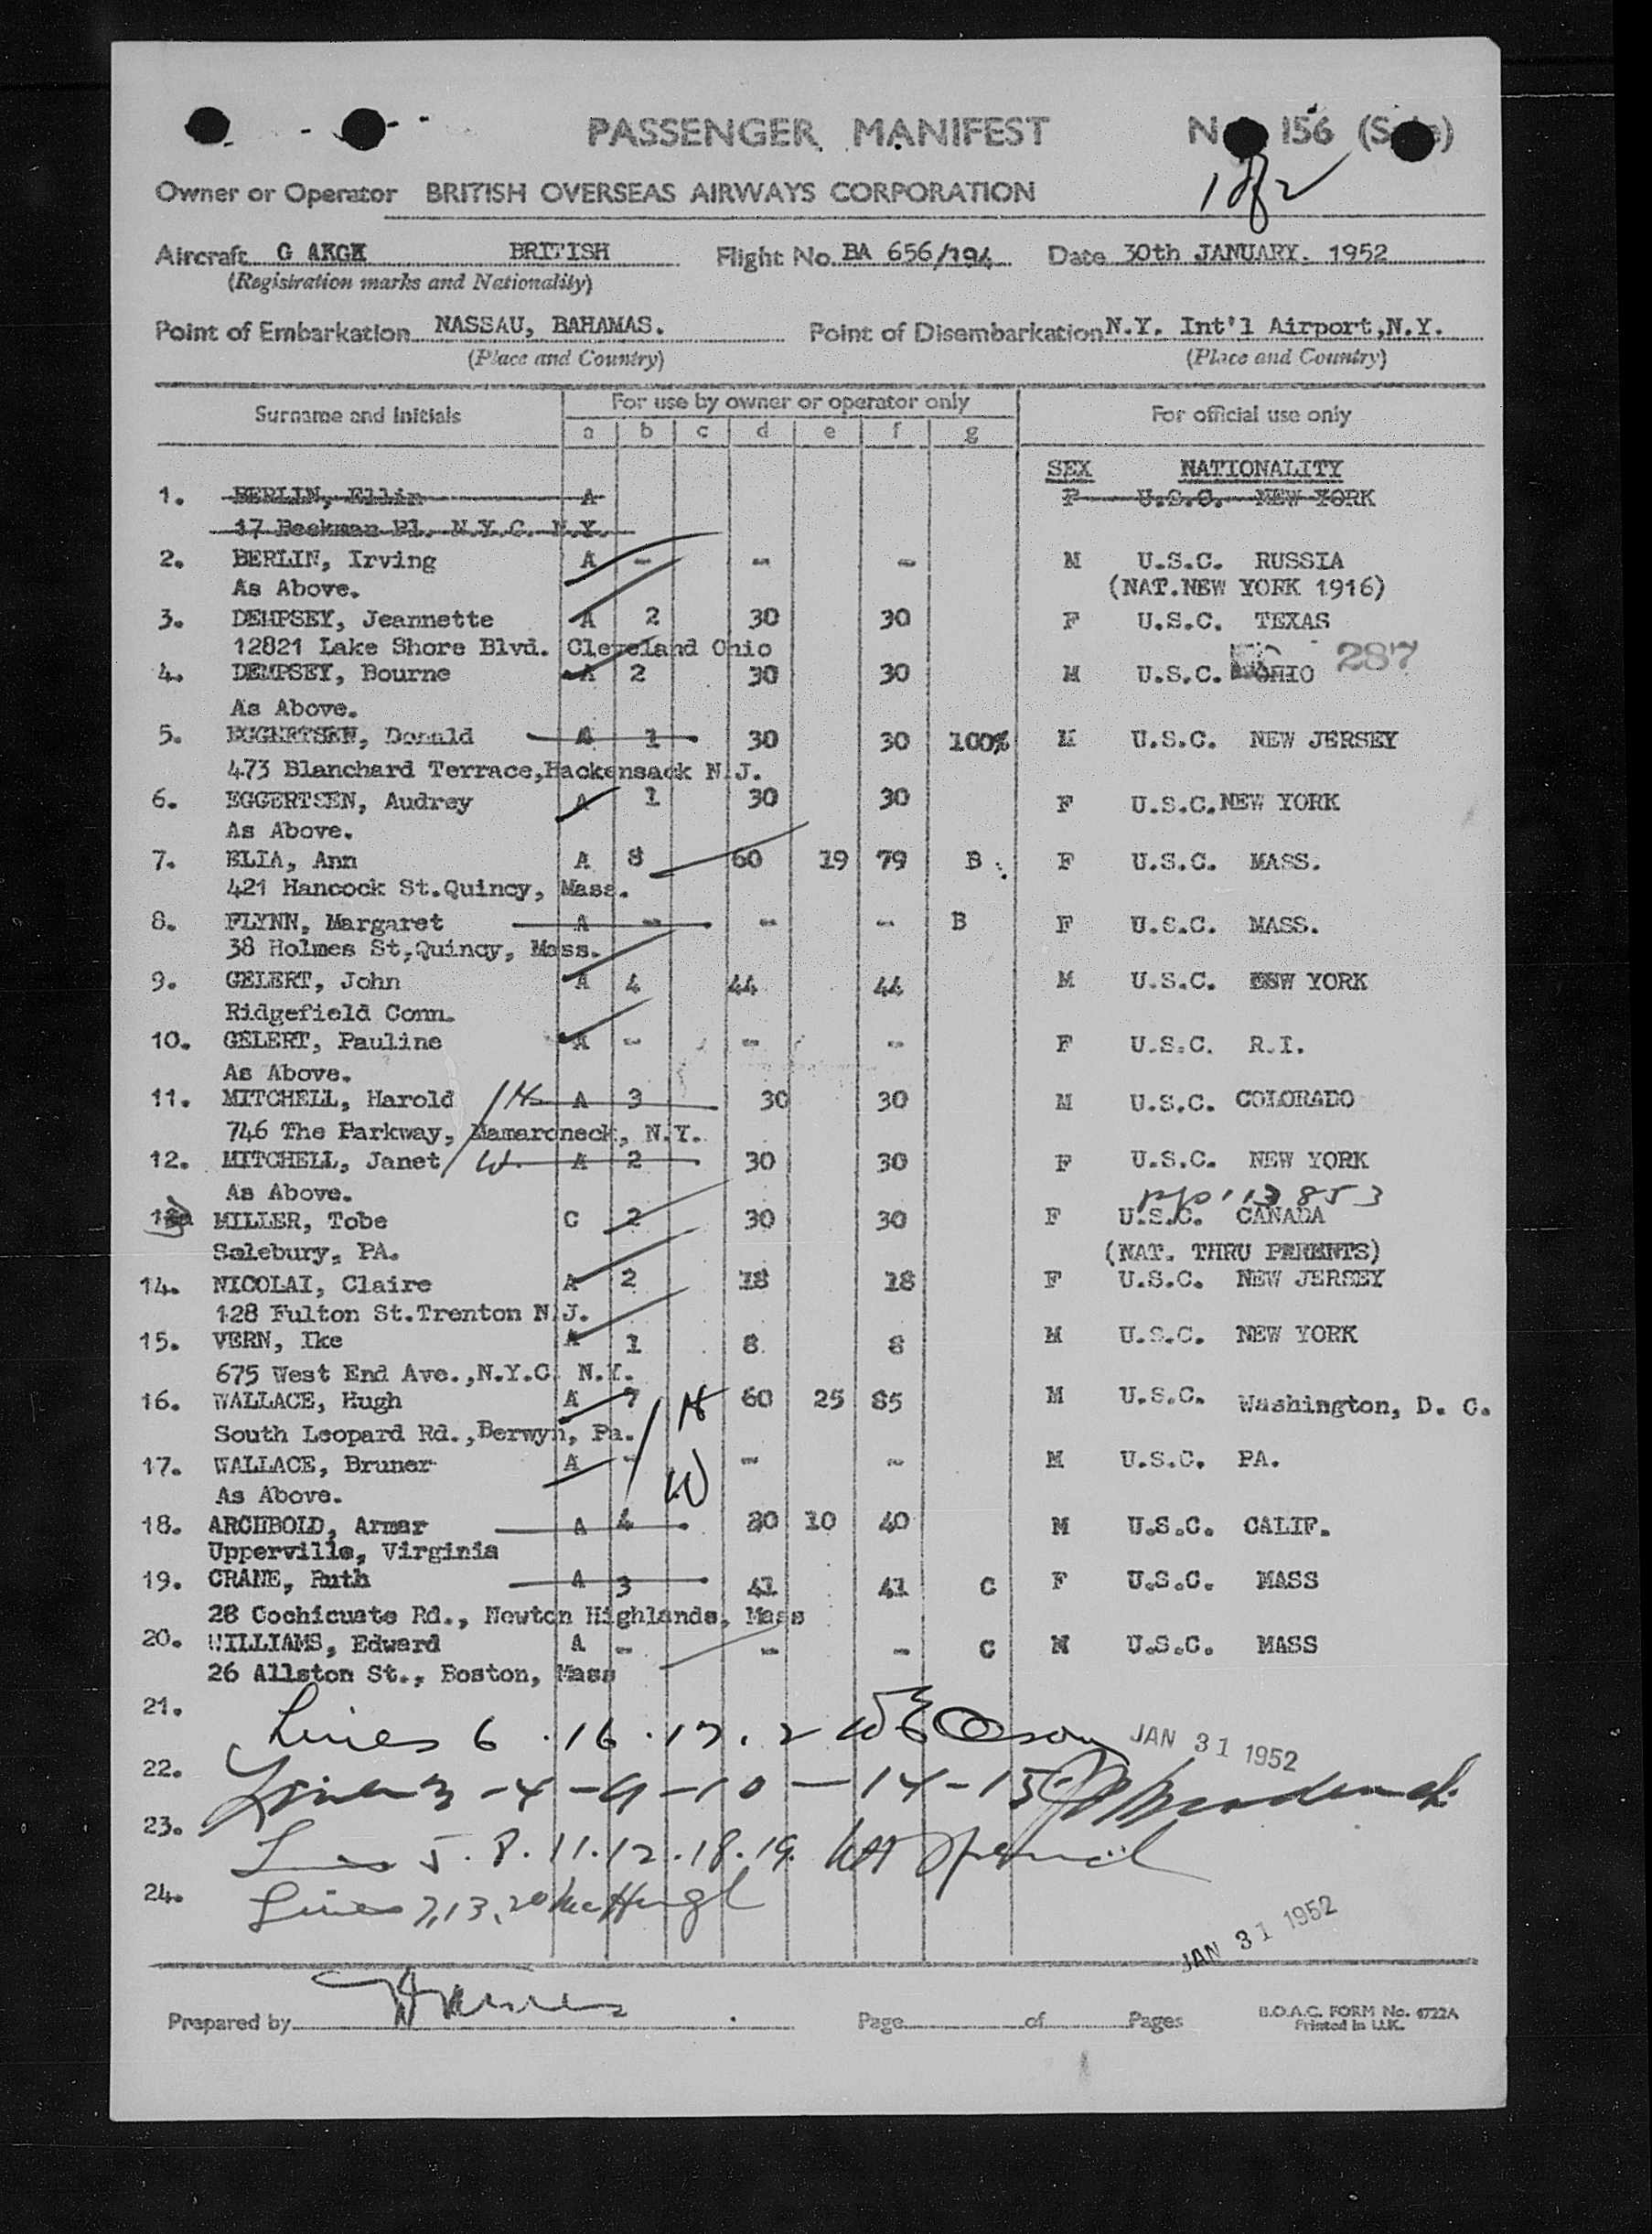 PASSENGER MANIFEST
156
1 of 2
Owner or Operator BRITISH OVERSEAS AIRWAYS CORPORATION
Aircraft G AKGK BRITISH Flight No. BA 656/194 Date 30th JANUARY. 1952
(Registration marks and Nationality)
Point of Embarkation NASSAU, BAHAMAS. Point of Disembarkation N.Y. Int'l Airport,N.Y.
(Place and Country) (Place and Country)
Surname and Initials For use by owner or operator only For official use only
a b c d e f g
SEX NATIONALITY
1. BERLIN, Ellin A F U.S.C. NEW YORK
17 Beekman Pl. N.Y.C. N.Y.
2. BERLIN, Irving A - - - M U.S.C. RUSSIA
As Above. (NAT.NEW YORK 1916)
3. DEMPSEY, Jeannette A 2 30 30 F U.S.C. TEXAS
12821 Lake Shore Blvd. Cleveland Ohio 287
4. DEMPSEY, Bourne A 2 30 30 M U.S.C. OHIO
As Above.
5. EGGERTSEN, Donald A 1 30 30 100% M U.S.C. NEW JERSEY
473 Blanchard Terrace,Hackensack N.J.
6. EGGERTSEN, Audrey A 1 30 30 F U.S.C.NEW YORK
As Above.
7. ELIA, Ann A 8 60 19 79 B F U.S.C. MASS.
421 Hancock St.Quincy, Mass.
8. FLYNN, Margaret A - - - B F U.S.C. MASS.
38 Holmes St,Quincy, Mass.
9. GELERT, John A 4 44 44 M U.S.C. NEW YORK
Ridgefield Conn.
10. GELERT, Pauline A - - - F U.S.C. R.I.
As Above.
11. MITCHELL, Harold H A 3 30 30 M U.S.C. COLORADO
746 The Parkway, Mamaroneck, N.Y.
12. MITCHELL, Janet W. A 2 30 30 F U.S.C. NEW YORK
As Above. p/p 113853
13. MILLER, Tobe C 2 30 30 F U.S.C. CANADA
Salebury, PA. (NAT. THRU PARENTS)
14. NICOLAI, Claire A 2 18 18 F U.S.C. NEW JERSEY
128 Fulton St.Trenton N.J.
15. VERN, Ike A 1 8 8 M U.S.C. NEW YORK
675 West End Ave.,N.Y.C. N.Y.
16. WALLACE, Hugh A 7 H 60 25 85 M U.S.C. Washington, D. C.
South Leopard Rd.,Berwyn, Pa.
17. WALLACE, Bruner A - W - - M U.S.C. PA.
As Above.
18. ARCHBOLD, Armar A 4 30 10 40 M U.S.C. CALIF.
Upperville, Virginia
19. CRANE, Ruth A 3 41 41 C F U.S.C. MASS
28 Cochicuate Rd., Newton Highlands, Mass
20. WILLIAMS, Edward A - - - C M U.S.C. MASS
26 Allston St., Boston, Mass
21. Lines 6 . 16 . 17 . 2 JAN 31 1952
22. Lines 3 - 4 - 9 - 10 - 14 - 15
23. Lines 5 . 8 . 11 . 12 . 18 . 19.
24. Lines 7, 13, 20 McHugh
JAN 31 1952
Prepared by Page of Pages
B.O.A.C. FORM No. 4722A
Printed in U.K.